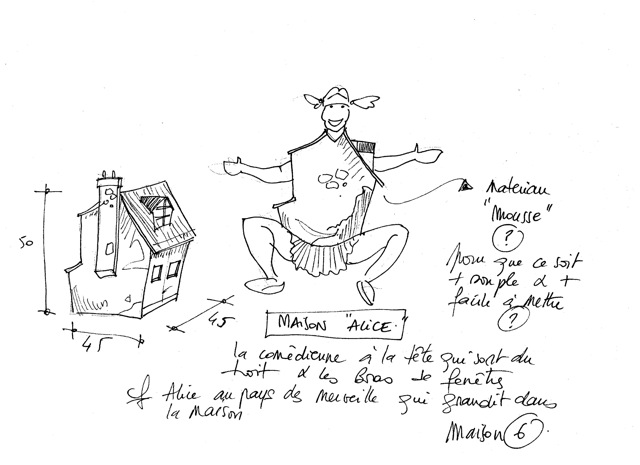 50
45
45
Materiau
"Mousse"
?
pour que ce soit
+ souple & +
facile à mettre
?
MAISON "ALICE"
la comédienne à la tête qui sort du
toit & les bras de fenêtres
cf Alice au pays des merveille qui grandit dans
la maison
Maison 6